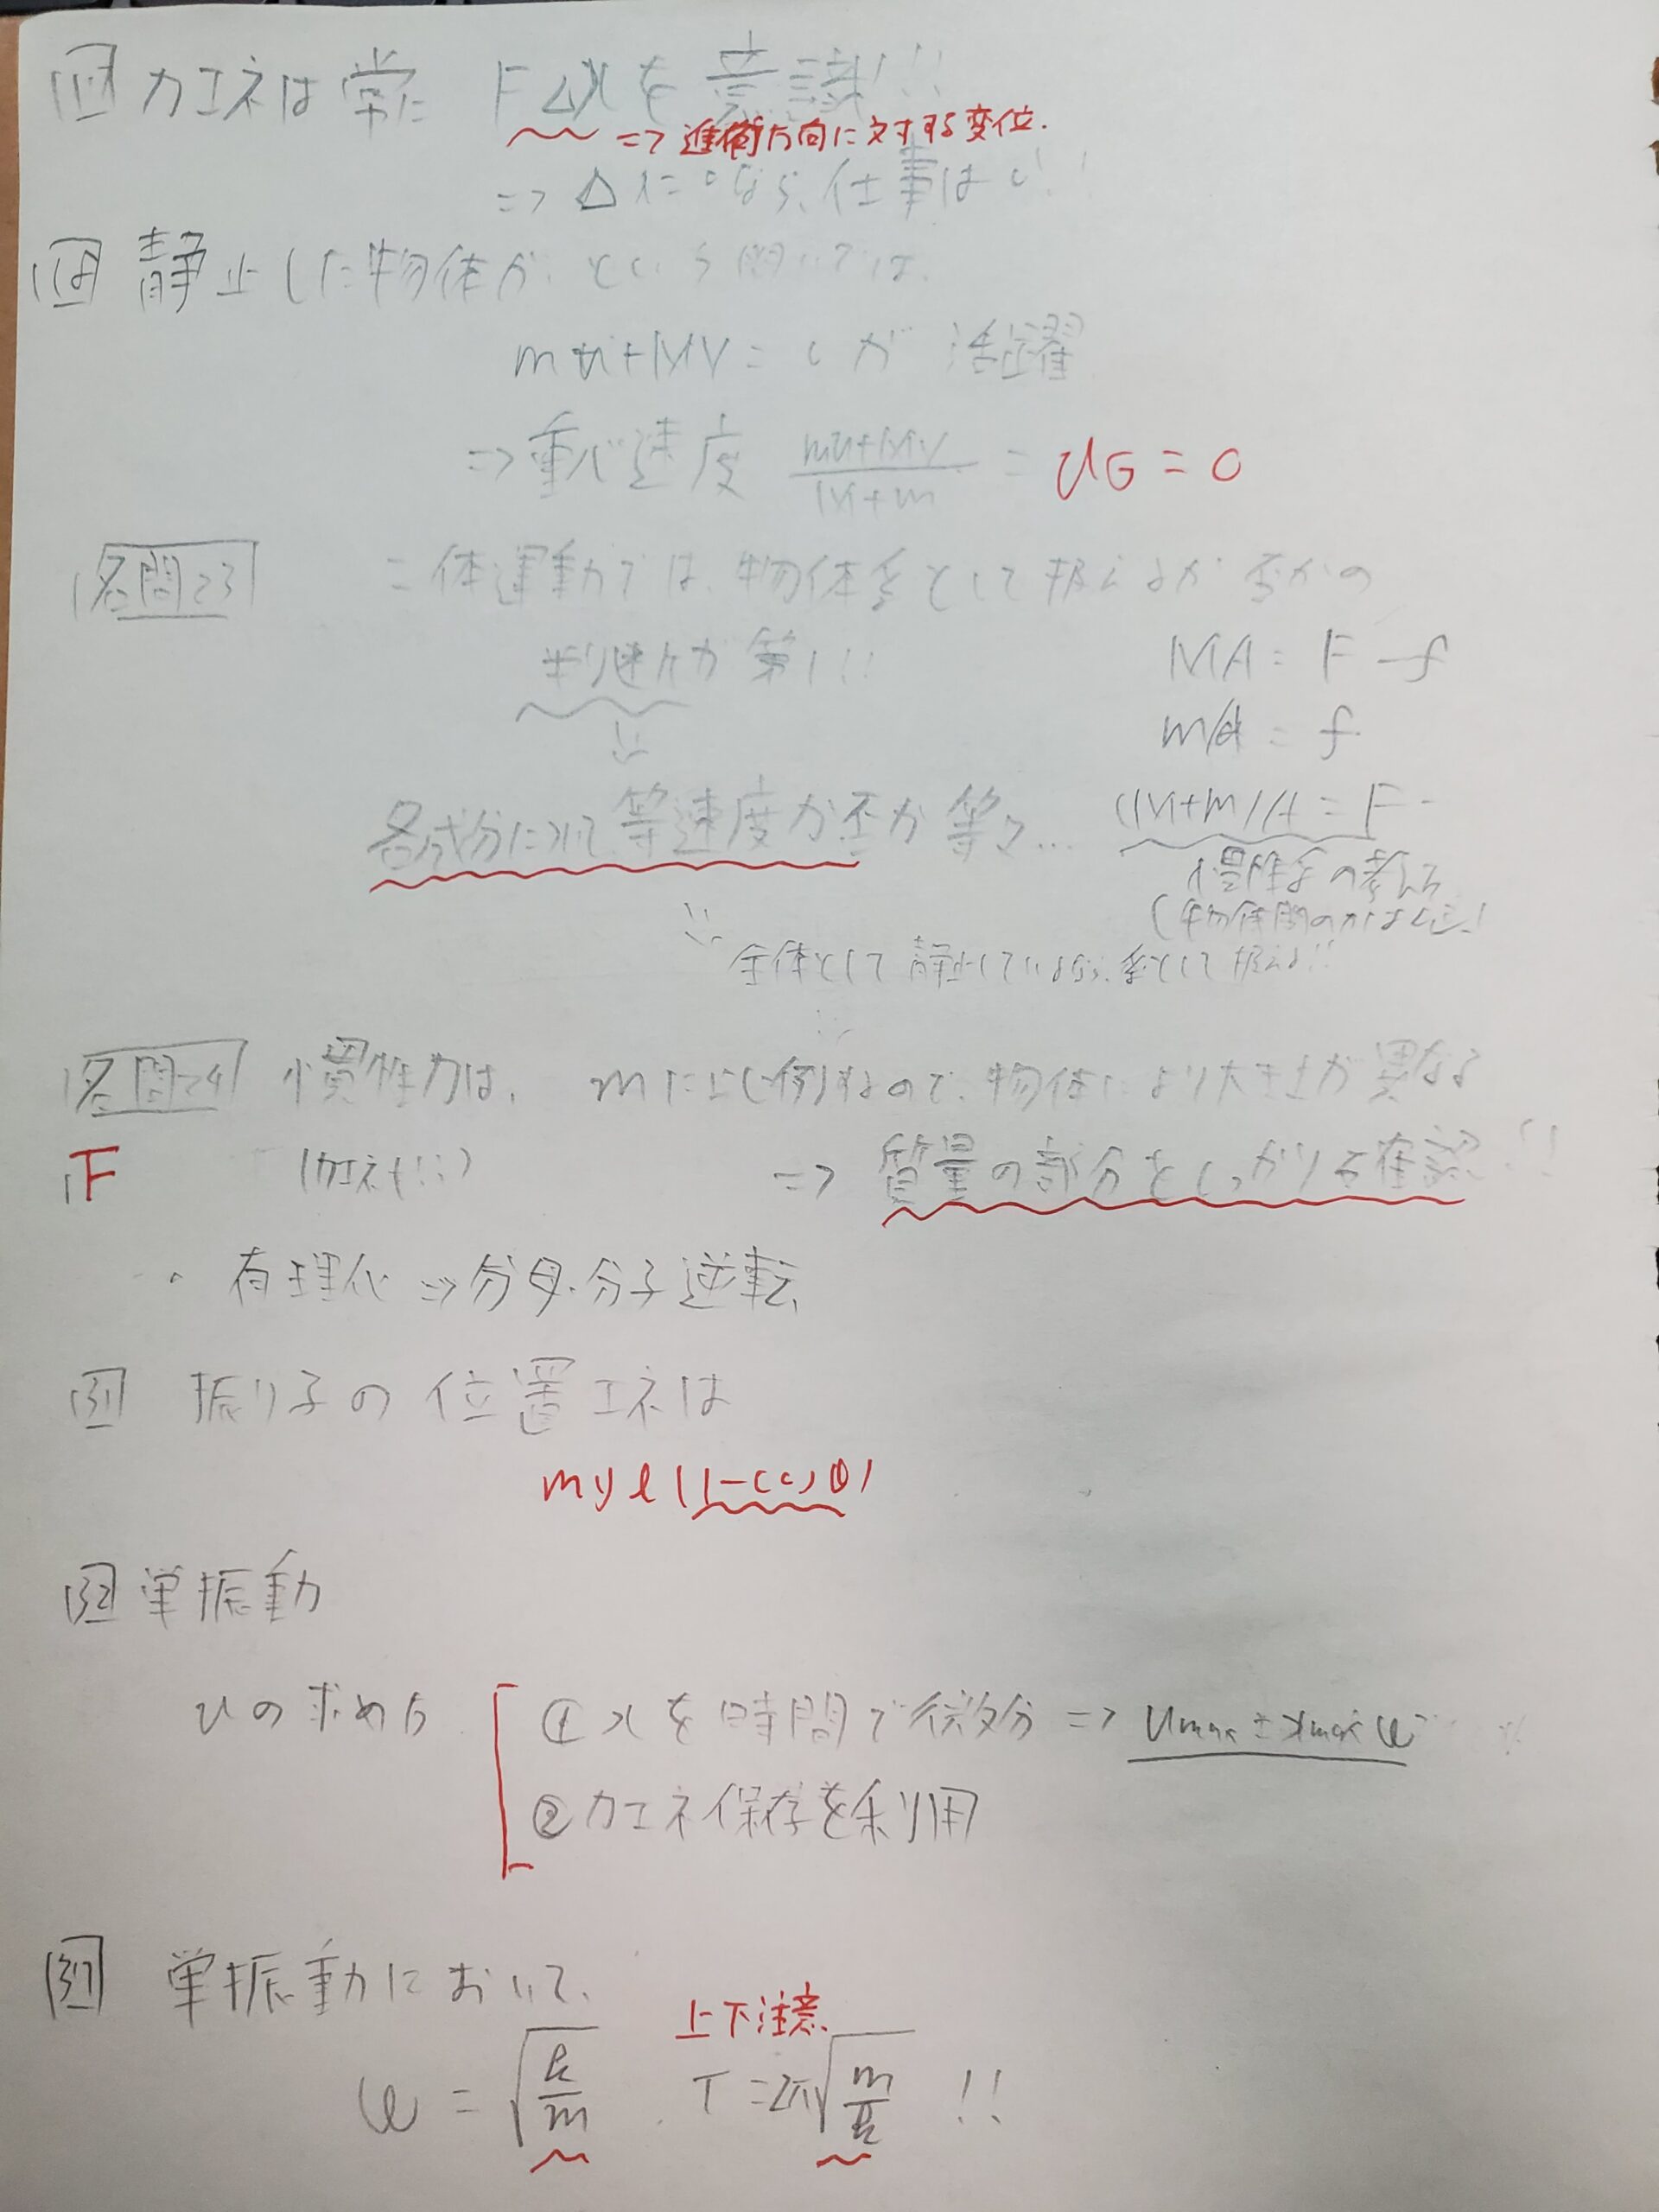 力エネは常に FΔxを意識!!
⇒ 進行方向に対する変位.
⇒ Δx=0なら、仕事は0!!
静止した物体が、という問いでは、
mv+MV=0が 活躍
⇒重心速度 mv+MV/M+m = vG = 0
名問23 二体運動では、物体系として扱えるか否かの
判断力が第1!!
MA = F-f
ma = f
各成分について等速度か否か等々… (M+m)A = F
慣性系の考え方
(物体間の力は
全体として静止しているなら、系として扱える!!
名問24 慣性力は、mに比例するので、物体により大きさが異なる
F (力エネも!!)
⇒ 質量の部分をしっかり確認!!
・有理化⇒分母・分子逆転
31 振り子の位置エネは
mgl(1-cosθ)
32 単振動
vの求め方 ①xを時間で微分 ⇒ vmax = xmax ω
②力エネ保存を利用
単振動において、
上下注意
ω = √k/m . T = 2π√m/k !!